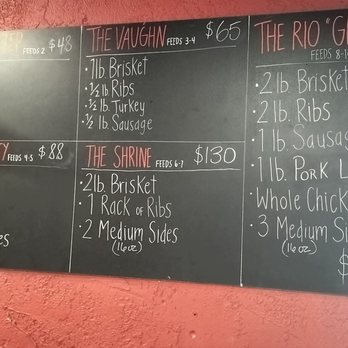 FEEDS 2 $48
THE VAUGHN FEEDS 3-4 $65
• 1 lb. Brisket
• ½ lb. Ribs
• ½ lb. Turkey
• ½ lb. Sausage
FEEDS 4-5 $88
THE SHRINE FEEDS 6-7 $130
• 2 lb. Brisket
• 1 Rack of Ribs
• 2 Medium Sides
(16oz)
THE RIO "G
FEEDS 8-1
• 2 lb. Brisket
• 2 lb. Ribs
• 1 lb. Sausag
• 1 lb. Pork L
• Whole Chick
• 3 Medium Si
(16 oz)
$